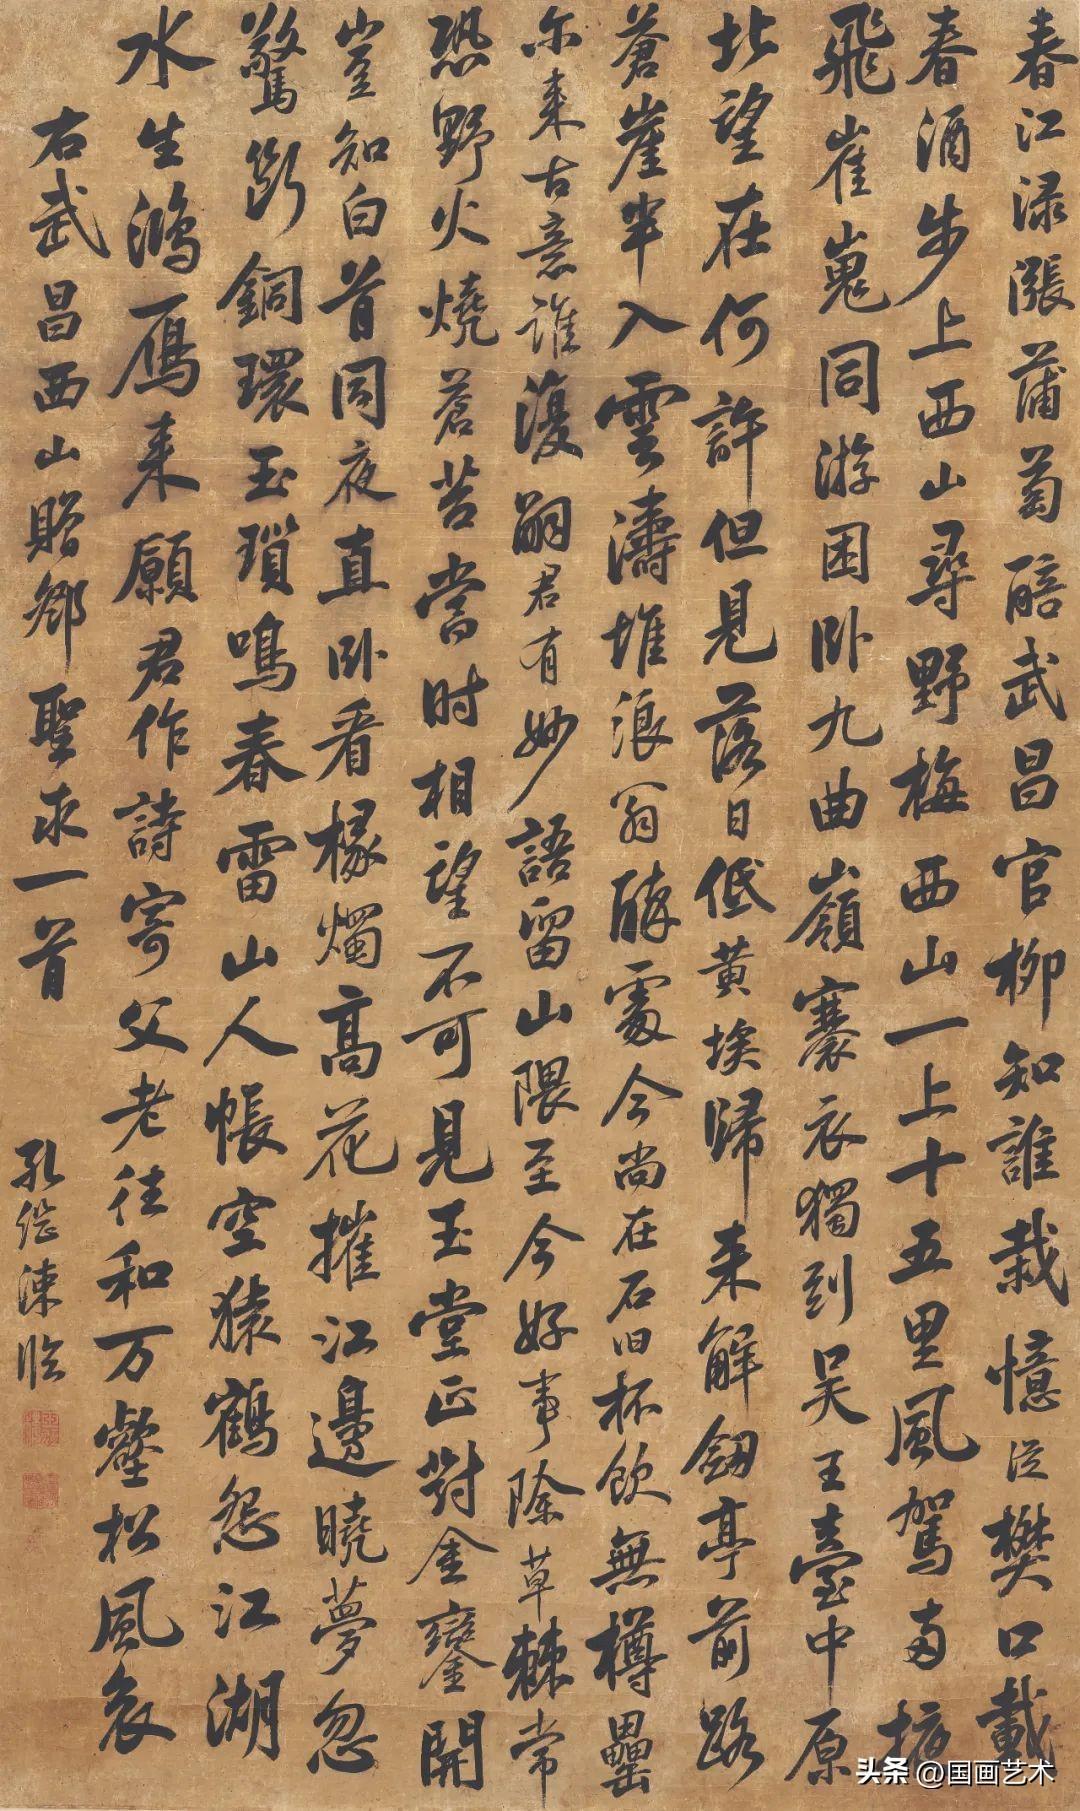 春江渌漲蒲萄醅武昌官柳知誰栽憶從樊口載
春酒步上西山尋野梅西山一上十五里風駕兩掖
飛崔嵬同游困卧九曲嶺褰衣獨到吳王臺中原
北望在何許但見落日低黃埃歸来解劒亭前路
蒼崖半入雲濤堆浪翁醉處今尚在石臼杯飲無樽罍
尓来古意誰復嗣君有妙語留山隈至今好事除草棘常
恐野火燒蒼苔當时相望不可見玉堂正對金鑾開
豈知白首同夜直卧看椽燭高花摧江邊曉夢忽
驚斷銅環玉瑣鳴春雷山人帳空猿鶴怨江湖
水生鴻鴈来願君作詩寄父老往和万壑松風哀
右武昌西山贈鄧聖求一首
孔継涑臨
头条 @国画艺术